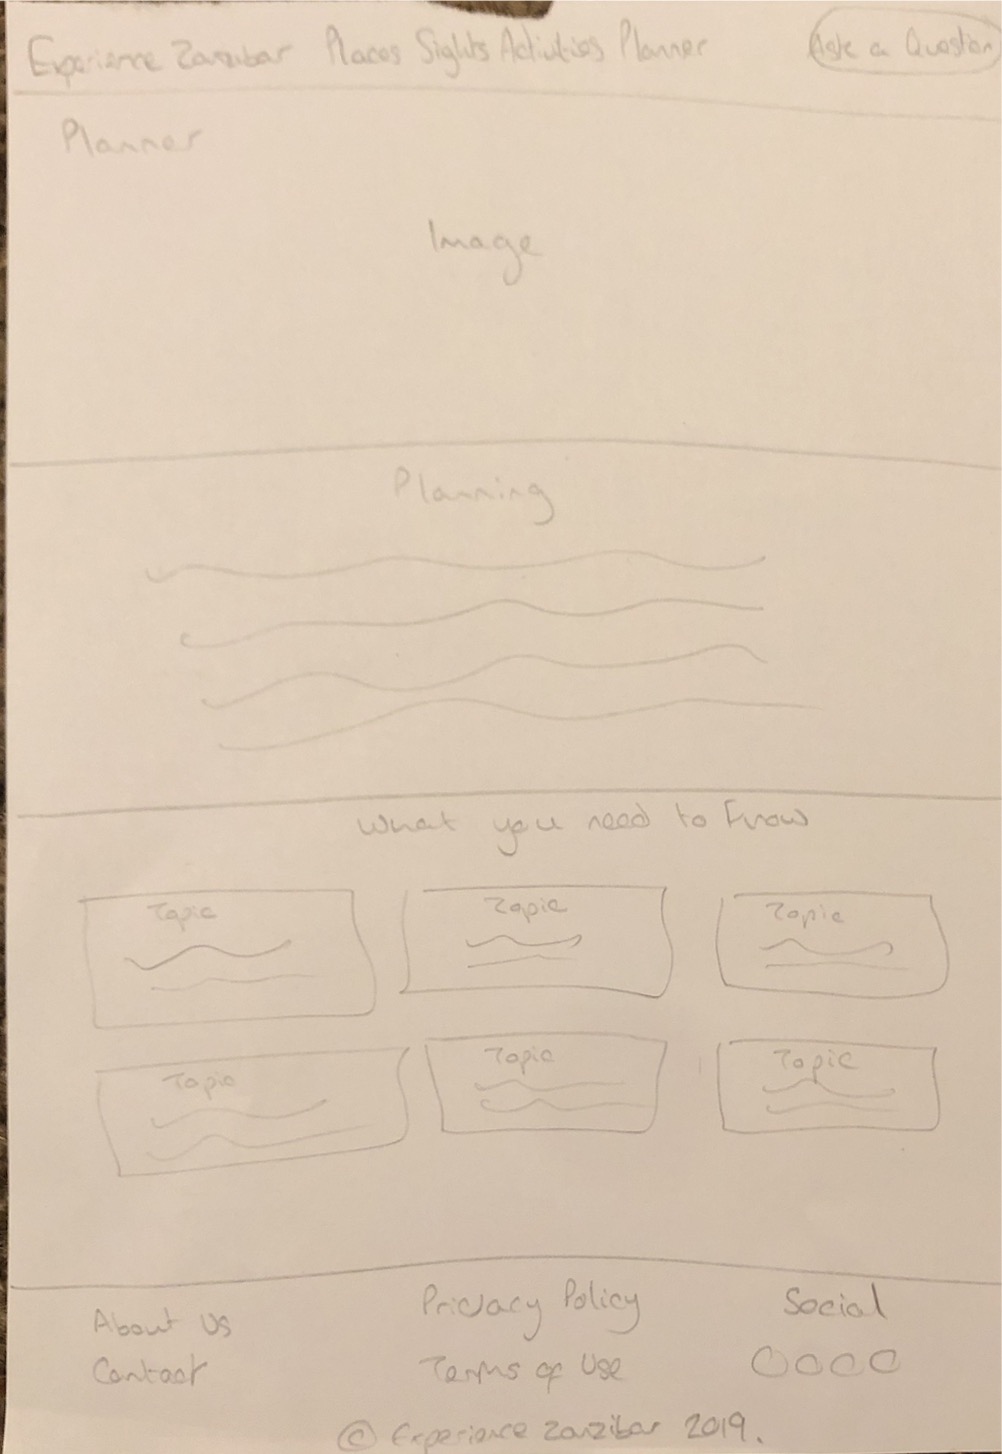 Experience Zanzibar Places Sights Activities Planner Ask a Question
Planner
Image
Planning
What you need to know
Topic Topic Topic
Topic Topic Topic
About Us Privacy Policy Social
Contact Terms of Use
© Experience Zanzibar 2019.